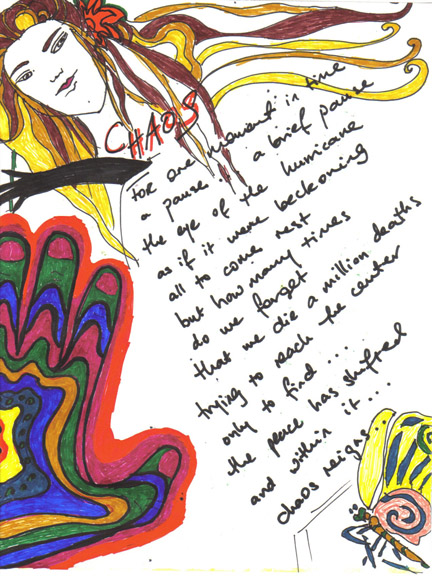 CHAOS
for one moment in time
a pause... a brief pause
the eye of the hurricane
as if it were beckoning
all to come rest
but how many times
do we forget
that we die a million deaths
trying to reach the center
only to find...
the peace has shifted
and within it...
chaos reigns...